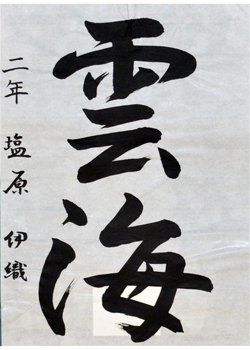 雲海
二年 塩原 伊織